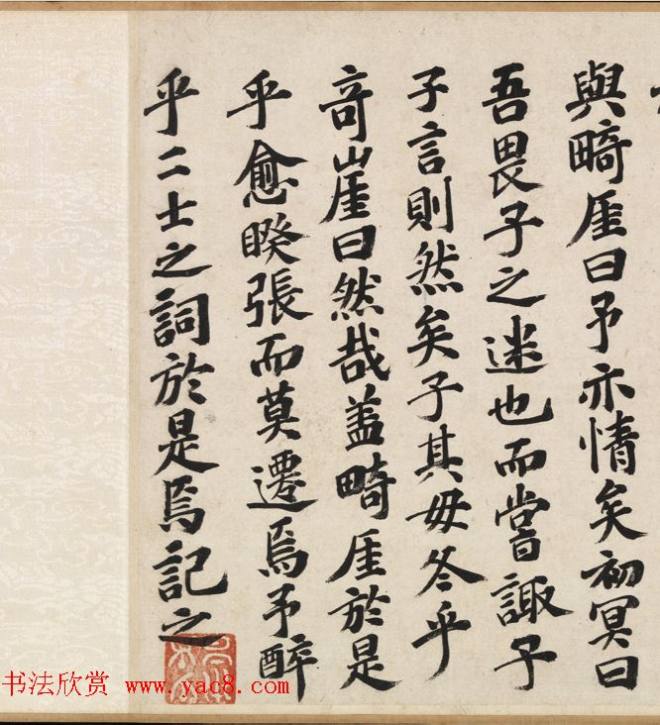 與畸厓曰予亦情矣初冥曰
吾畏子之迷也而嘗諏子
子言則然矣子其毋冬乎
竒崖曰然哉盖畸厓於是
乎愈睽張而莫遷焉予醉
乎二士之詞於是焉記之
书法欣赏 www.yac8.com